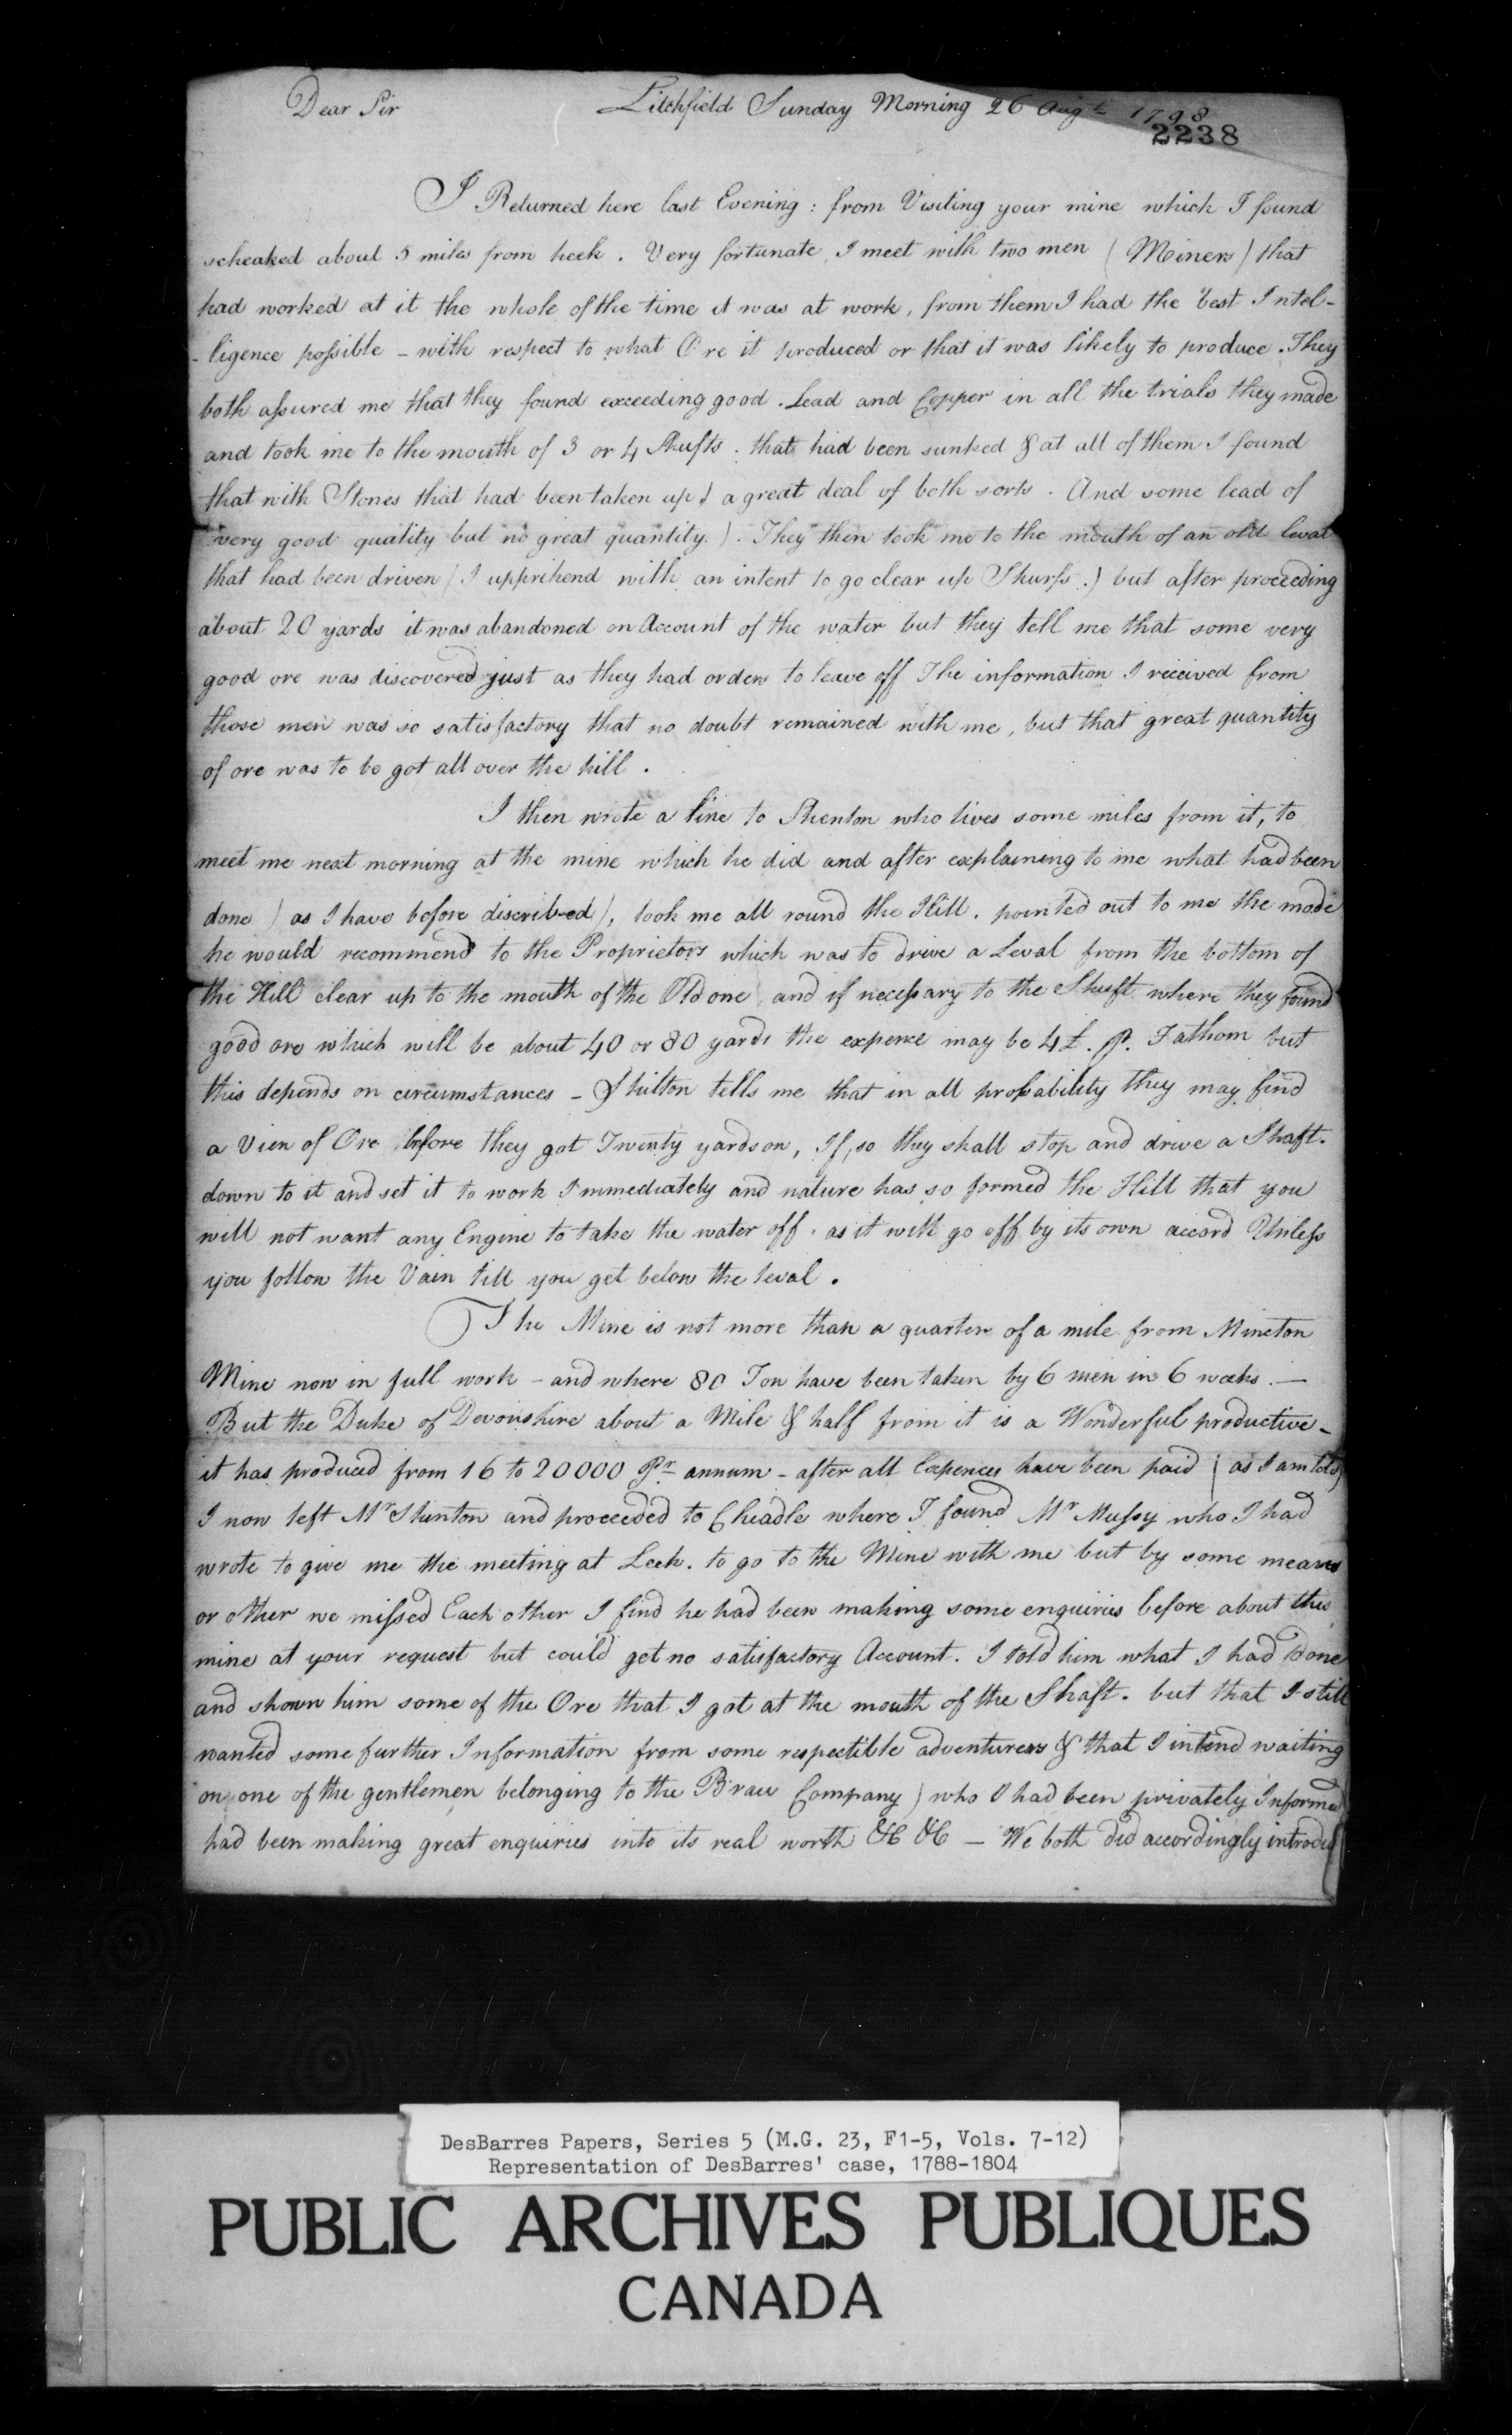 Dear Sir Litchfield Sunday Morning 26 Augt 1798
2238
I Returned here last Evening : from Visiting your mine which I found
scheaked about 5 miles from heek . Very fortunate , I meet with two men ( Meiners ) that
had worked at it the whole of the time it was at work , from them I had the best Intel-
-ligence possible - with respect to what Ore it produced or that it was likely to produce . They
both assured me that they found exceeding good . Lead and Copper in all the trials they made
and took me to the mouth of 3 or 4 Shafts . that had been sunked & at all of them I found
that with Stones that had been taken up ) a great deal of both sorts . And some lead of
very good quality but no great quantity . ) . They then took me to the mouth of an old leval
that had been driven ( I upprihend with an intent to go clear up Shurfs . ) but after proceeding
about 20 yards it was abandoned on Account of the water but they tell me that some very
good ore was discovered just as they had orders to leave off The information I received from
those men was so satisfactory that no doubt remained with me , but that great quantity
of ore was to be got all over the hill .
I then wrote a line to Shenton who lives some miles from it , to
meet me next morning at the mine which he did and after explaining to me what had been
done ) as I have before discribed ) , took me all round the Hill . pointed out to me the mode
he would recommend to the Proprietors which was to drive a Leval from the bottom of
the Hill clear up to the mouth of the Old one , and if necessary to the Shaft where they found
good ore which will be about 40 or 80 yards the expence may be 4 £ . P. Fathom but
this depends on circumstances - Shilton tells me that in all probability they may find
a Vien of Ore before they got Twenty yards on , If , so they shall stop and drive a Shaft .
down to it and set it to work Immediately and nature has so formed the Hill that you
will not want any Engine to take the water off . as it will go off by its own accord Unless
you follow the Vain till you get below the leval .
The Mine is not more than a quarter of a mile from Mineton
Mine now in full work - and where 80 Ton have been taken by 6 men in 6 weeks . -
But the Duke of Devonshire about a Mile & half from it is a Wonderful productive -
it has produced from 16 to 20000 Pr annum - after all Expences have been paid ( as I am told )
I now left Mr Shenton and proceeded to Cheadle where I found Mr Mussy who I had
wrote to give me the meeting at Leek . to go to the Mine with me but by some means
or other we missed Each other I find he had been making some enquiries before about this
mine at your request but could get no satisfactory Account . I told him what I had Done
and shown him some of the Ore that I got at the mouth of the Shaft . but that I still
wanted some further Information from some respectible adventurers & that I intend waiting
on one of the gentlemen belonging to the Brass Company ) who I had been privately Informed
had been making great enquiries into its real worth &C &C - We both did accordingly introdu
DesBarres Papers, Series 5 (M.G. 23, F1-5, Vols. 7-12)
Representation of DesBarres' case, 1788-1804
PUBLIC ARCHIVES PUBLIQUES
CANADA